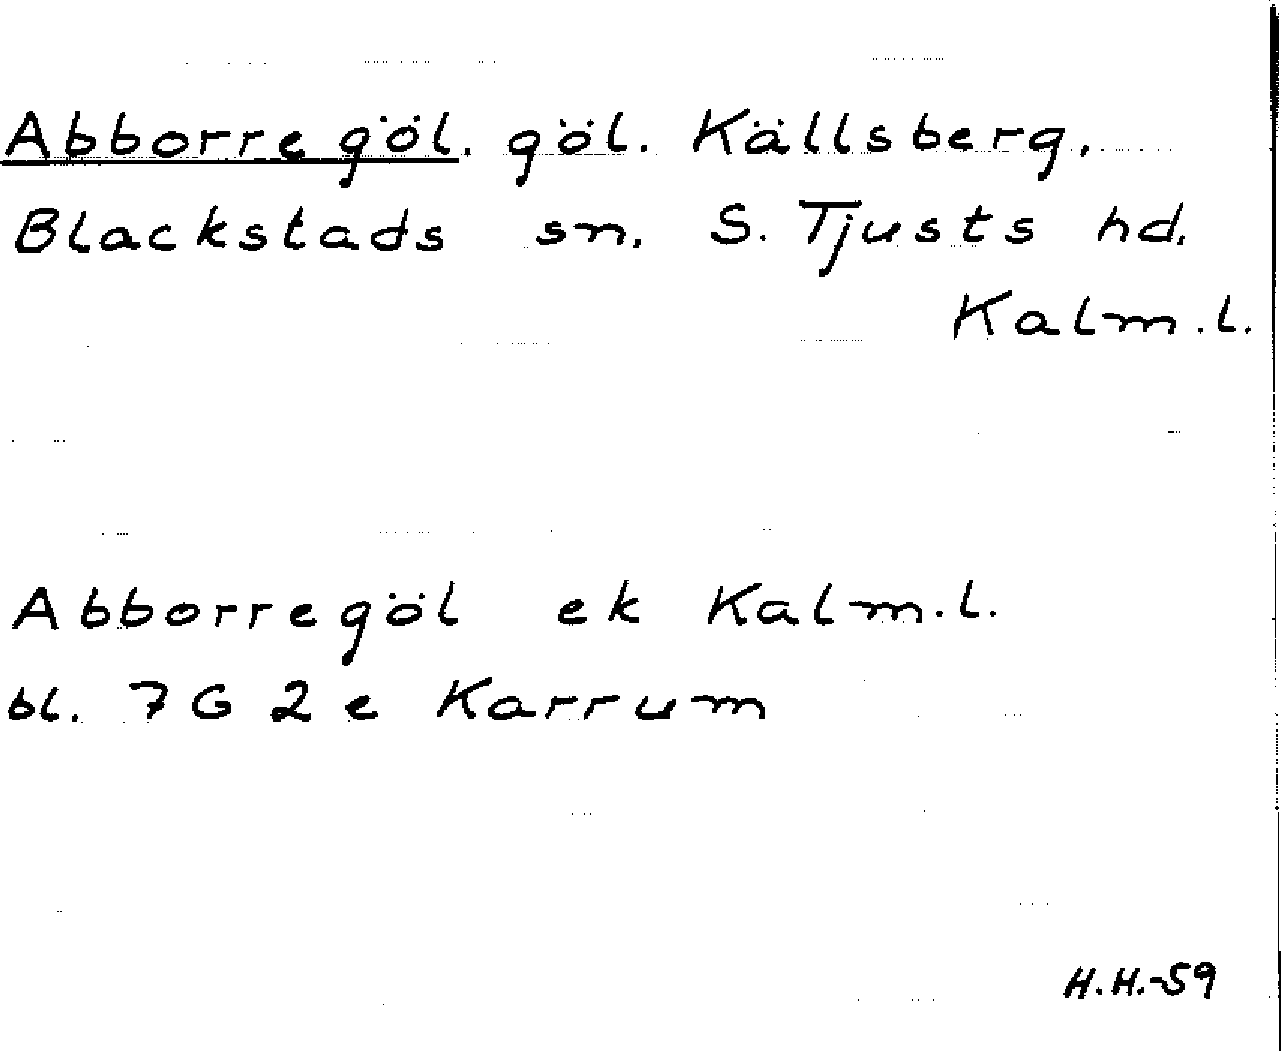 Abborregöl. göl. Källsberg,
Blackstads sn. S. Tjusts hd.
Kalm.l.
Abborregöl ek Kalm.l.
bl. 7 G 2 e Karrum
H.H.-59